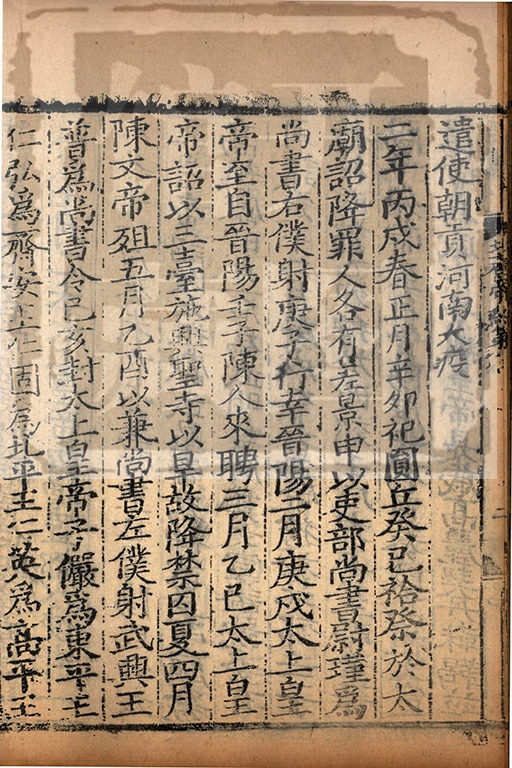 遣使朝貢河南大疫
二年丙戌春正月辛卯祀圓丘癸巳祫祭於太
廟詔降罪人各有差景申以吏部尚書尉瑾爲
尚書右僕射庚子行幸晉陽二月庚戌太上皇
帝至自晉陽壬子陳人來聘三月乙巳太上皇
帝詔以三臺施興聖寺以旱故降禁囚夏四月
陳文帝殂五月乙酉以兼尚書左僕射武興王
普爲尚書令己亥封太上皇帝子儼爲東平王
仁弘爲齊安王仁固爲北平王仁英爲高平王